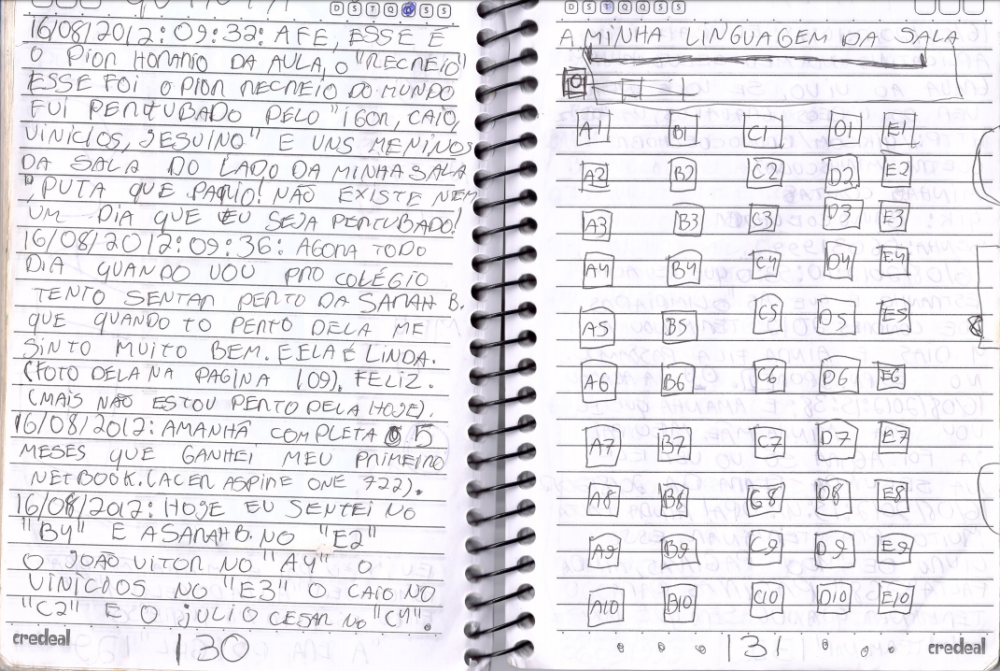 D S T Q Q S S
16/08/2012: 09:32: AFE, ESSE É
O PIOR HORARIO DA AULA, O "RECREIO"
ESSE FOI O PIOR RECREIO DO MUNDO
FUI PERTUBADO PELO "IGOR, CAIO,
VINICIOS, JESUINO" E UNS MENINOS
DA SALA DO LADO DA MINHA SALA
, PUTA QUE PARIO! NÃO EXISTE NEM
UM DIA QUE EU SEJA PERTUBADO!
16/08/2012: 09:36: AGORA TODO
DIA QUANDO VOU PRO COLÉGIO
TENTO SENTAR PERTO DA SARAH B.
QUE QUANDO TO PERTO DELA ME
SINTO MUITO BEM. E ELA É LINDA.
(FOTO DELA NA PAGINA 109). FELIZ.
(MAIS NÃO ESTOU PERTO DELA HOJE).
16/08/2012: AMANHÃ COMPLETA 5
MESES QUE GANHEI MEU PRIMEIRO
NETBOOK. (ACER ASPIRE ONE 722).
16/08/2012: HOJE EU SENTEI NO
"B4" E A SARAH B. NO "E2"
O JOÃO VITOR NO "A4" O
VINÍCIOS NO "E3" O CAIO NO
"C2" E O JULIO CESAR NO "C4".
credeal
130
D S T Q Q S S
A MINHA LINGUAGEM DA SALA
A1 B1 C1 D1 E1
A2 B2 C2 D2 E2
A3 B3 C3 D3 E3
A4 B4 C4 D4 E4
A5 B5 C5 D5 E5
A6 B6 C6 D6 E6
A7 B7 C7 D7 E7
A8 B8 C8 D8 E8
A9 B9 C9 D9 E9
A10 B10 C10 D10 E10
131
credeal